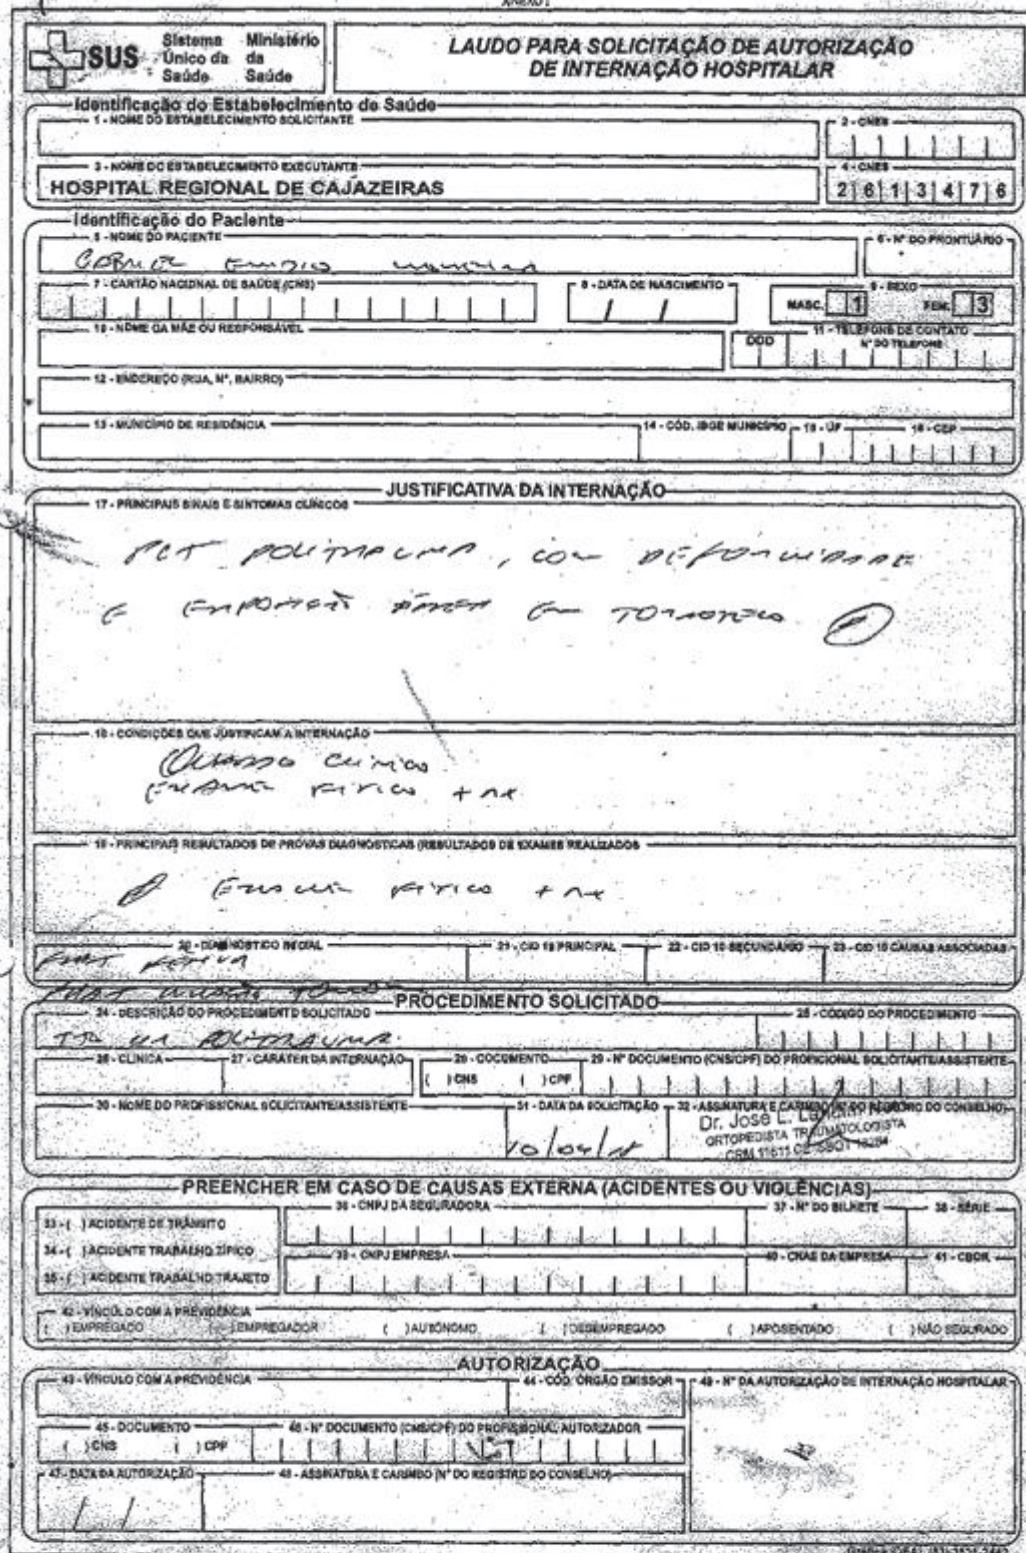 ANEXO I
SUS Sistema Único da Saúde Ministério da Saúde
LAUDO PARA SOLICITAÇÃO DE AUTORIZAÇÃO
DE INTERNAÇÃO HOSPITALAR
Identificação do Estabelecimento de Saúde
1 - NOME DO ESTABELECIMENTO SOLICITANTE 2 - CNES
3 - NOME DO ESTABELECIMENTO EXECUTANTE 4 - CNES
HOSPITAL REGIONAL DE CAJAZEIRAS 2 6 1 3 4 7 6
Identificação do Paciente
5 - NOME DO PACIENTE 6 - Nº DO PRONTUÁRIO
GABRIEL
7 - CARTÃO NACIONAL DE SAÚDE (CNS) 8 - DATA DE NASCIMENTO 9 - SEXO
/ / MASC. 1 FEM. 3
10 - NOME DA MÃE OU RESPONSÁVEL 11 - TELEFONE DE CONTATO
DDD Nº DO TELEFONE
12 - ENDEREÇO (RUA, Nº, BAIRRO)
13 - MUNICÍPIO DE RESIDÊNCIA 14 - CÓD. IBGE MUNICÍPIO 15 - UF 16 - CEP
JUSTIFICATIVA DA INTERNAÇÃO
17 - PRINCIPAIS SINAIS E SINTOMAS CLÍNICOS
PCT POLITRAUMA, COM DEFORMIDADE
E EXPOSIÇÃO ÓSSEA EM TORNOZELO
18 - CONDIÇÕES QUE JUSTIFICAM A INTERNAÇÃO
QUADRO CLINICO
EXAME FISICO + RX
19 - PRINCIPAIS RESULTADOS DE PROVAS DIAGNÓSTICAS (RESULTADOS DE EXAMES REALIZADOS
EXAME FISICO + RX
20 - DIAGNÓSTICO INICIAL 21 - CID 10 PRINCIPAL 22 - CID 10 SECUNDÁRIO 23 - CID 10 CAUSAS ASSOCIADAS
PROCEDIMENTO SOLICITADO
24 - DESCRIÇÃO DO PROCEDIMENTO SOLICITADO 25 - CÓDIGO DO PROCEDIMENTO
POLITRAUMA
26 - CLÍNICA 27 - CARÁTER DA INTERNAÇÃO 28 - DOCUMENTO 29 - Nº DOCUMENTO (CNS/CPF) DO PROFICIONAL SOLICITANTE/ASSISTENTE
( ) CNS ( ) CPF
30 - NOME DO PROFISSIONAL SOLICITANTE/ASSISTENTE 31 - DATA DA SOLICITAÇÃO 32 - ASSINATURA E CARIMBO (Nº DO REGISTRO DO CONSELHO)
Dr. José L.
ORTOPEDISTA TRAUMATOLOGISTA
PREENCHER EM CASO DE CAUSAS EXTERNA (ACIDENTES OU VIOLÊNCIAS)
33 - ( ) ACIDENTE DE TRÂNSITO 36 - CNPJ DA SEGURADORA 37 - Nº DO BILHETE 38 - SÉRIE
34 - ( ) ACIDENTE TRABALHO TÍPICO 39 - CNPJ EMPRESA 40 - CNAE DA EMPRESA 41 - CBOR
35 - ( ) ACIDENTE TRABALHO TRAJETO
42 - VÍNCULO COM A PREVIDÊNCIA
( ) EMPREGADO ( ) EMPREGADOR ( ) AUTÔNOMO ( ) DESEMPREGADO ( ) APOSENTADO ( ) NÃO SEGURADO
AUTORIZAÇÃO
43 - VÍNCULO COM A PREVIDÊNCIA 44 - CÓD. ÓRGÃO EMISSOR 49 - Nº DA AUTORIZAÇÃO DE INTERNAÇÃO HOSPITALAR
45 - DOCUMENTO 46 - Nº DOCUMENTO (CNS/CPF) DO PROFISSIONAL AUTORIZADOR
( ) CNS ( ) CPF
47 - DATA DA AUTORIZAÇÃO 48 - ASSINATURA E CARIMBO (Nº DO REGISTRO DO CONSELHO)
/ /